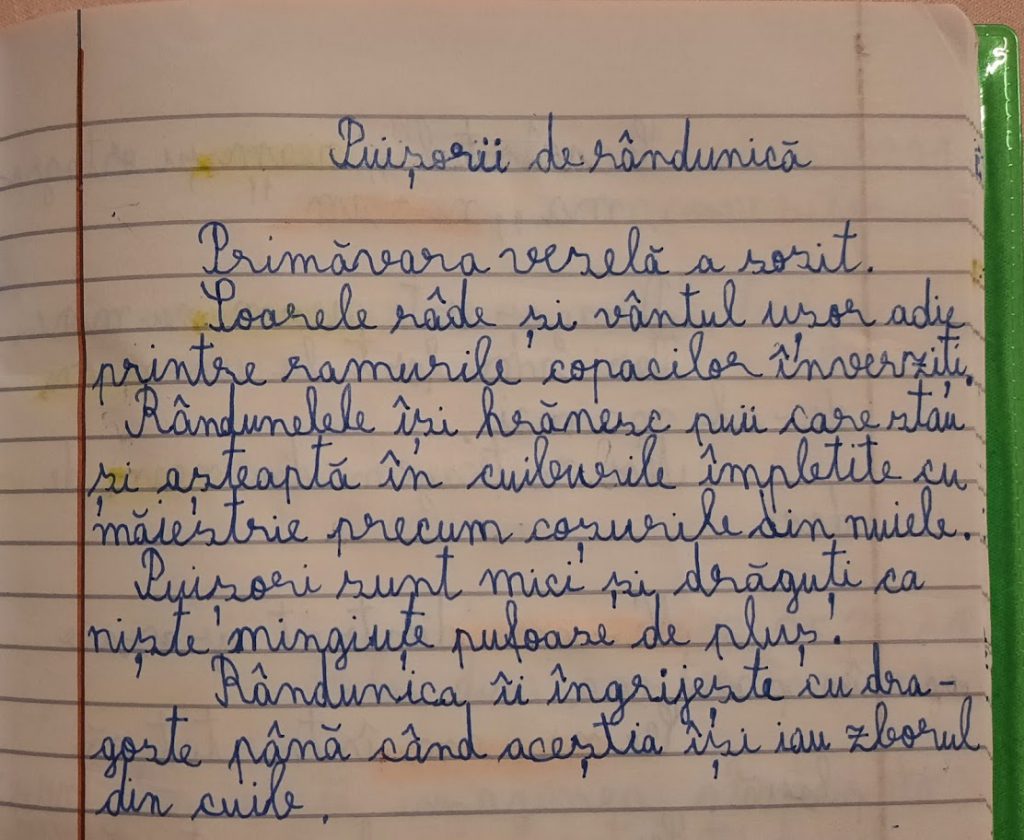 Puișorii de rândunică
Primăvara veselă a sosit.
Soarele râde și vântul ușor adie
printre ramurile copacilor înverziți.
Rândunelele își hrănesc puii care stau
și așteaptă în cuiburile împletite cu
măiestrie precum coșurile din nuiele.
Puișori sunt mici și drăguți ca
niște mingiuțe pufoase de pluș.
Rândunica îi îngrijește cu dra-
goste până când aceștia își iau zborul
din cuib.